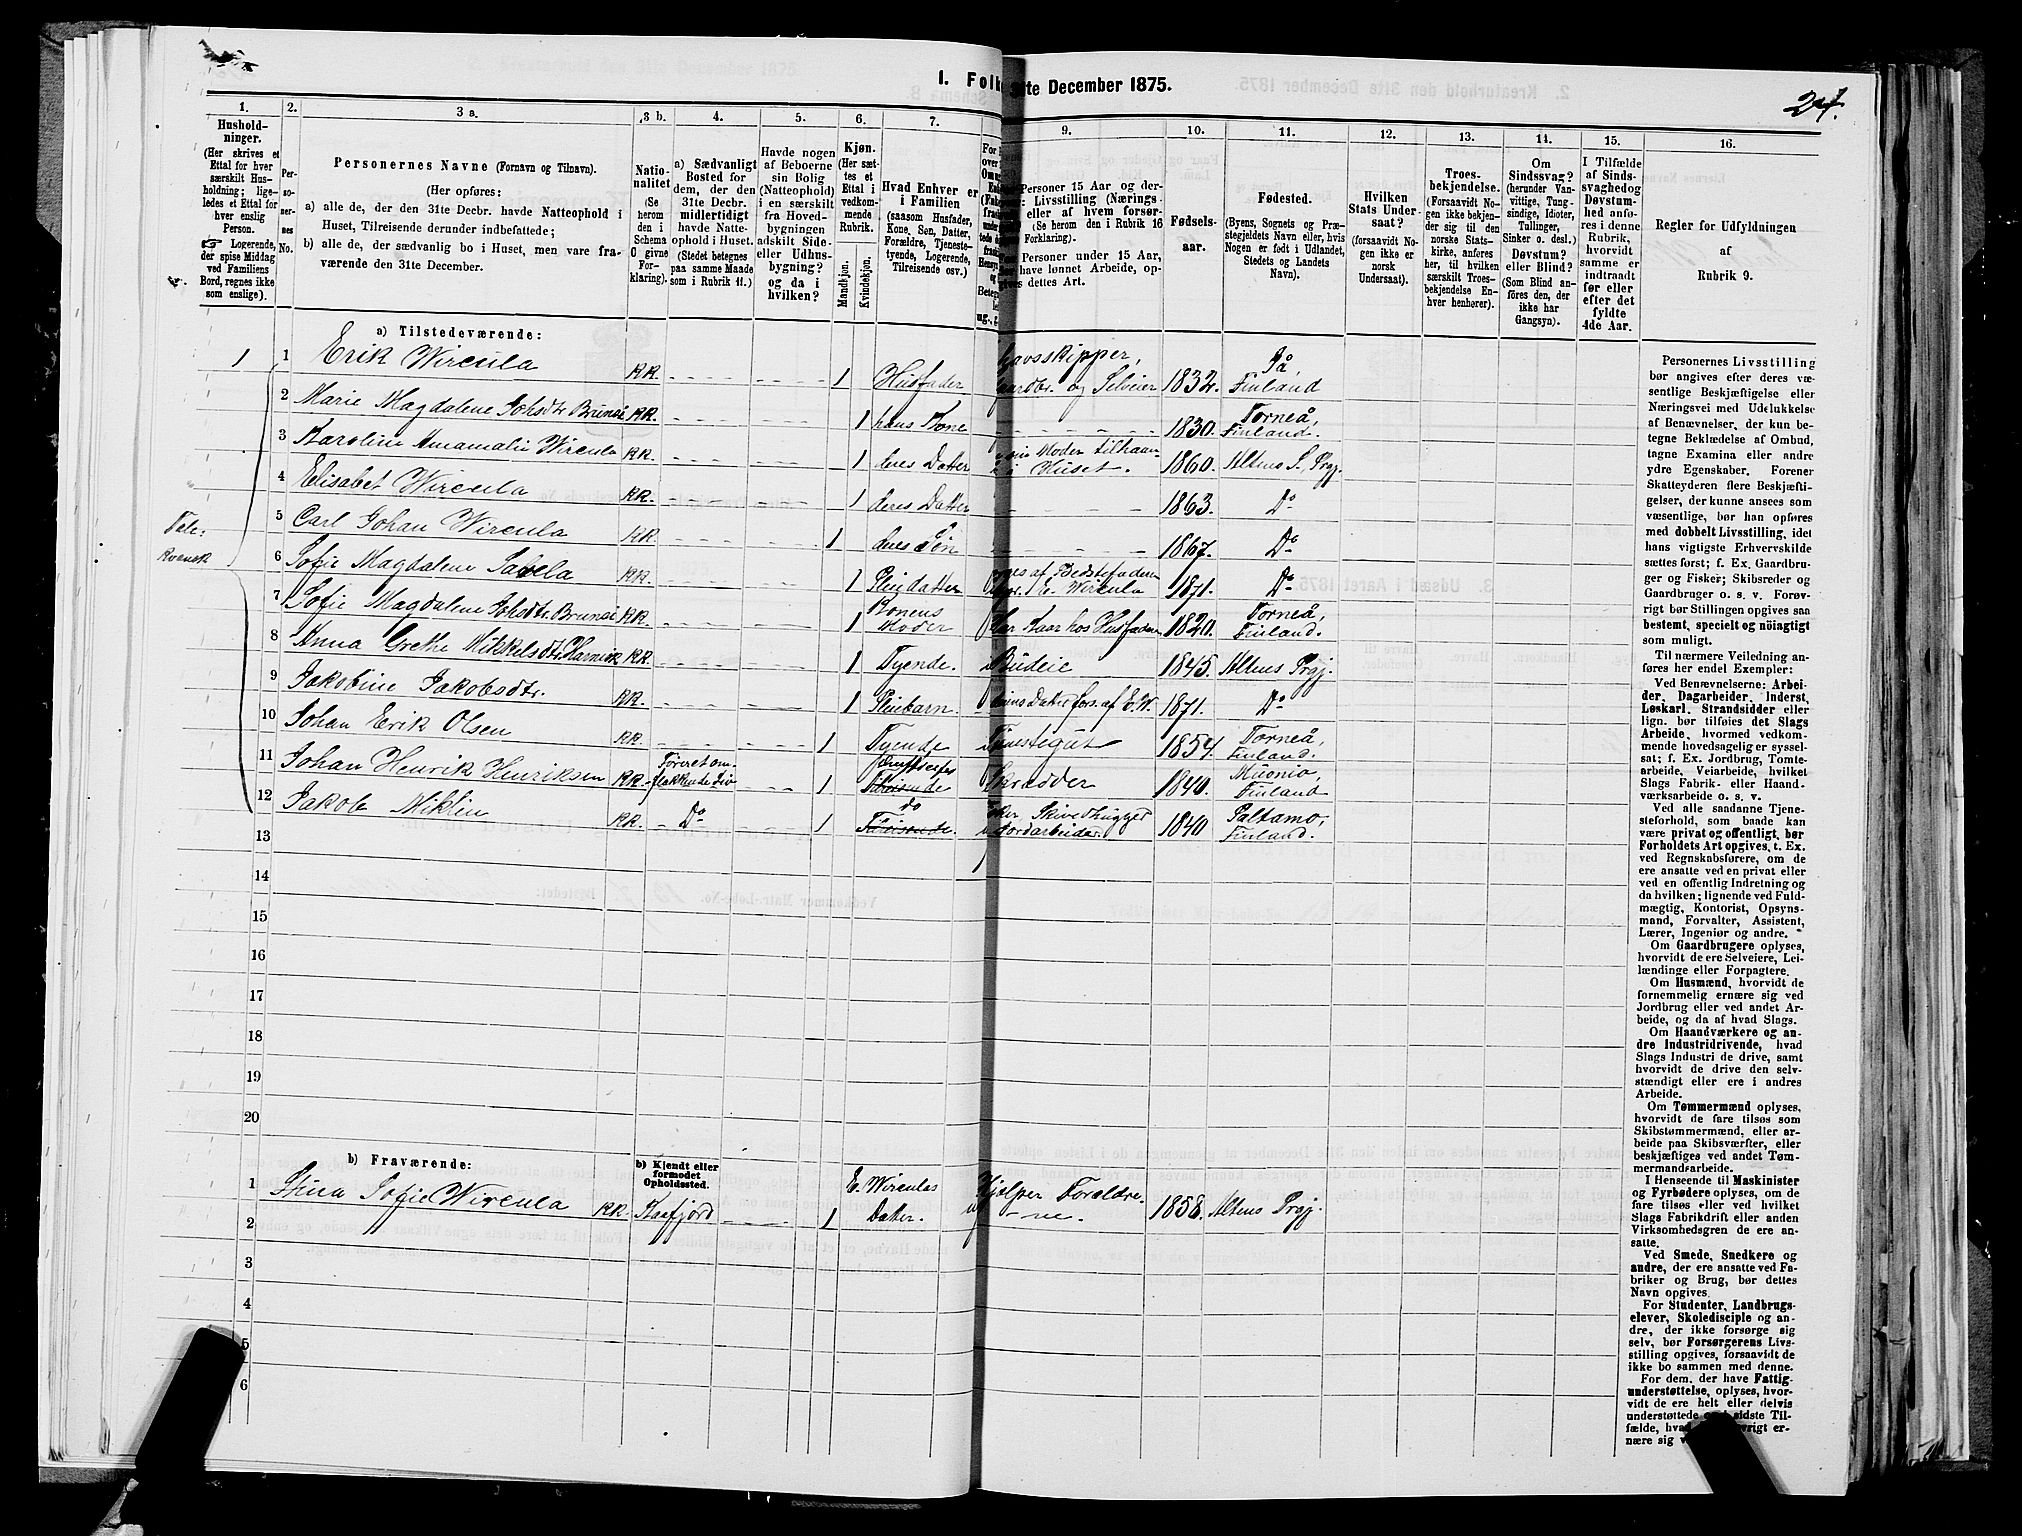 I. Folk
31te December 1875.
24.
1.
Husholdninger.
(Her skrives et
Ettal for hver
særskilt Husholdning;
ligeledes et Ettal for
hver enslig
Person.
Logerende,
der spise Middag
ved Familiens
Bord, regnes ikke
som enslige).
2.
Personernes
No.
3 a.
Personernes Navne (Fornavn og Tilnavn).
(Her opføres:
a) alle de, der den 31te Decbr. havde Natteophold i
Huset, Tilreisende derunder indbefattede;
b) alle de, der sædvanlig bo i Huset, men vare fraværende
den 31te December.
3 b.
Nationalitet
(Se
herom
den i
Schema
O givne
Forklaring).
4.
a) Sædvanligt
Bosted for
dem, der den
31te Decbr.
midlertidigt
havde Natteophold
i Huset.
(Stedet betegnes
paa samme Maade
som i Rubrik 11.)
5.
Havde nogen
af Beboerne
sin Bolig
(Natteophold)
i en særskilt
fra Hovedbygningen
adskilt Side-
eller Udhusbygning?
og da i
hvilken?
6.
Kjøn.
(Her sættes
et
Ettal i
vedkommende
Rubrik.)
Mandkjøn.
Kvindekjøn.
7.
Hvad Enhver er
i Familien
(saasom Husfader,
Kone, Søn, Datter,
Forældre, Tjenestetyende,
Logerende,
Tilreisende osv.)
9.
Personer 15 Aar og der-
: Livsstilling (Nærings-
eller af hvem forsør-
(Se herom den i Rubrik 16
Forklaring).
Personer under 15 Aar,
have lønnet Arbeide, op-
gives dettes Art.
10.
Fødselsaar.
11.
Fødested.
(Byens, Sognets og Præstegjeldets
Navn eller, hvis
Nogen er født i Udlandet,
Stedets og Landets
Navn).
12.
Hvilken
Stats Undersaat?
(forsaavidt Nogen
ikke er
norsk
Undersaat).
13.
Troesbekjendelse.
(Forsaavidt Nogen
ikke bekjender
sig til den
norske Statskirke,
anføres
her, til hvilken
særskilt Troesbekjendelse
Enhver
henhører).
14.
Om
Sindssvag?
(herunder Vanvittige,
Tungsindige,
Idioter,
Tullinger,
Sinker o. desl.)
Døvstum?
eller Blind?
(Som Blind anføres
den, der
ikke har
Gangsyn).
15.
I Tilfælde
af Sindssvaghed
og
Døvstumhed
anføres
i denne
Rubrik,
hvorvidt
samme er
indtraadt
før eller
efter det
fyldte
4de Aar.
16.
Regler for Udfyldningen
af
Rubrik 9.
a) Tilstedeværende:
1 1 Erik Wircula RR. 1 Husfader skipper, Gaardbr. og Selveier 1832. Finland
2 Marie Magdalene Johsdtr Brunsi RR. 1 hans Kone 1830. Torneå, Finland.
3 Karoline Annamalie Wircula RR. 1 deres Datter Moder tilhaan i Huset. 1860. Altens S., Prgj.
4 Elisabet Wircula RR. 1 deres Datter 1863. Do
5 Carl Johan Wircula RR. 1 deres Søn 1867. Do
6 Sofie Magdalene RR. 1 Pleiedatter af Bedstefaderen E. Wircula 1871. Do
7 Sofie Magdalene Johsdtr. Brunsi RR. 1 Konens Moder Kaar hos Husfaderen 1820. Torneå, Finland.
8 Anna Grethe Mikkelsdtr RR. 1 Tyende. Budeie 1845. Altens Prgj.
9 Jakobine Jakobsdtr. RR. 1 Pleiebarn. Datter fors. af E. W. 1871. Do
10 Johan Erik Olsen RR. 1 Tyende Tjenestegut 1854. Torneå, Finland.
11 Johan Henrik Henriksen RR. Føreret omflakkende Liv 1 Skrædder 1840. Muonio, Finland
12 Jakob Niklin RR. Do 1 do Jordarbeider 1840 Paltamo, Finland.
kvænsk
13
14
15
16
17
18
19
20
b) Fraværende:
b) Kjendt eller
formodet
Opholdssted.
1 Stina Sofie Wircula RR. Kaafjord 1 E. Wirculas Datter. Hjælper Forældrene. 1858. Altens Prgj.
2
3
4
5
6
Personernes Livsstilling
bør angives efter deres væsentlige
Beskjæftigelse eller
Næringsvei med Udelukkelse
af Benævnelser, der kun betegne
Beklædelse af Ombud,
tagne Examina eller andre
ydre Egenskaber. Forener
Skatteyderen flere Beskjæftigelser,
der kunne ansees som
væsentlige, bør han opføres
med dobbelt Livsstilling, idet
hans vigtigste Erhvervskilde
sættes først; f. Ex. Gaardbruger
og Fisker; Skibsreder og
Gaardbruger o. s. v. Forøvrigt
bør Stillingen opgives saa
bestemt, specielt og nöiagtigt
som muligt.
Til nærmere Veiledning anføres
her endel Exempler:
Ved Benævnelserne: Arbeider,
Dagarbeider, Inderst,
Løskarl, Strandsidder eller
lign. bør tilføies det Slags
Arbeide, hvormed vedkommende
hovedsagelig er sysselsat;
f. Ex. Jordbrug, Tomtearbeide,
Veiarbeide, hvilket
Slags Fabrik- eller Haandværksarbeide
o. s. v.
Ved alle saadanne Tjenesteforhold,
som baade kan
være privat og offentligt, bør
Forholdets Art opgives, t. Ex.
ved Regnskabsførere, om de
ere ansatte ved en privat eller
ved en offentlig Indretning og
da hvilken; lignende ved Fuldmægtig,
Kontorist, Opsynsmand,
Forvalter, Assistent,
Lærer, Ingeniør og andre.
Om Gaardbrugere oplyses,
hvorvidt de ere Selveiere, Leilændinge
eller Forpagtere.
Om Husmænd, hvorvidt de
fornemmelig ernære sig ved
Jordbrug eller ved andet Arbeide,
og da af hvad Slags.
Om Haandværkere og andre
Industridrivende, hvad
Slags Industri de drive, samt
hvorvidt de drive den selvstændigt
eller ere i andres
Arbeide.
Om Tømmermænd oplyses,
hvorvidt de fare tilsøs som
Skibstømmermænd, eller arbeide
paa Skibsværfter, eller
beskjæftiges ved andet Tømmermandsarbeide.
I Henseende til Maskinister
og Fyrbødere oplyses, om de
fare tilsøs eller ved hvilket
Slags Fabrikdrift eller anden
Virksomhedsgren de ere ansatte.
Ved Smede, Snedkere og
andre, der ere ansatte ved Fabriker
og Brug, bør dettes
Navn opgives.
For Studenter, Landbrugselever,
Skoledisciple og andre,
der ikke forsørge sig
selv, bør Forsørgerens Livsstilling
opgives, forsaavidt de
ikke bo sammen med denne.
For dem, der have Fattigunderstøttelse,
oplyses, hvorvidt
de ere helt eller delvis
understøttede
sidste Tilfælde,
ernære sig